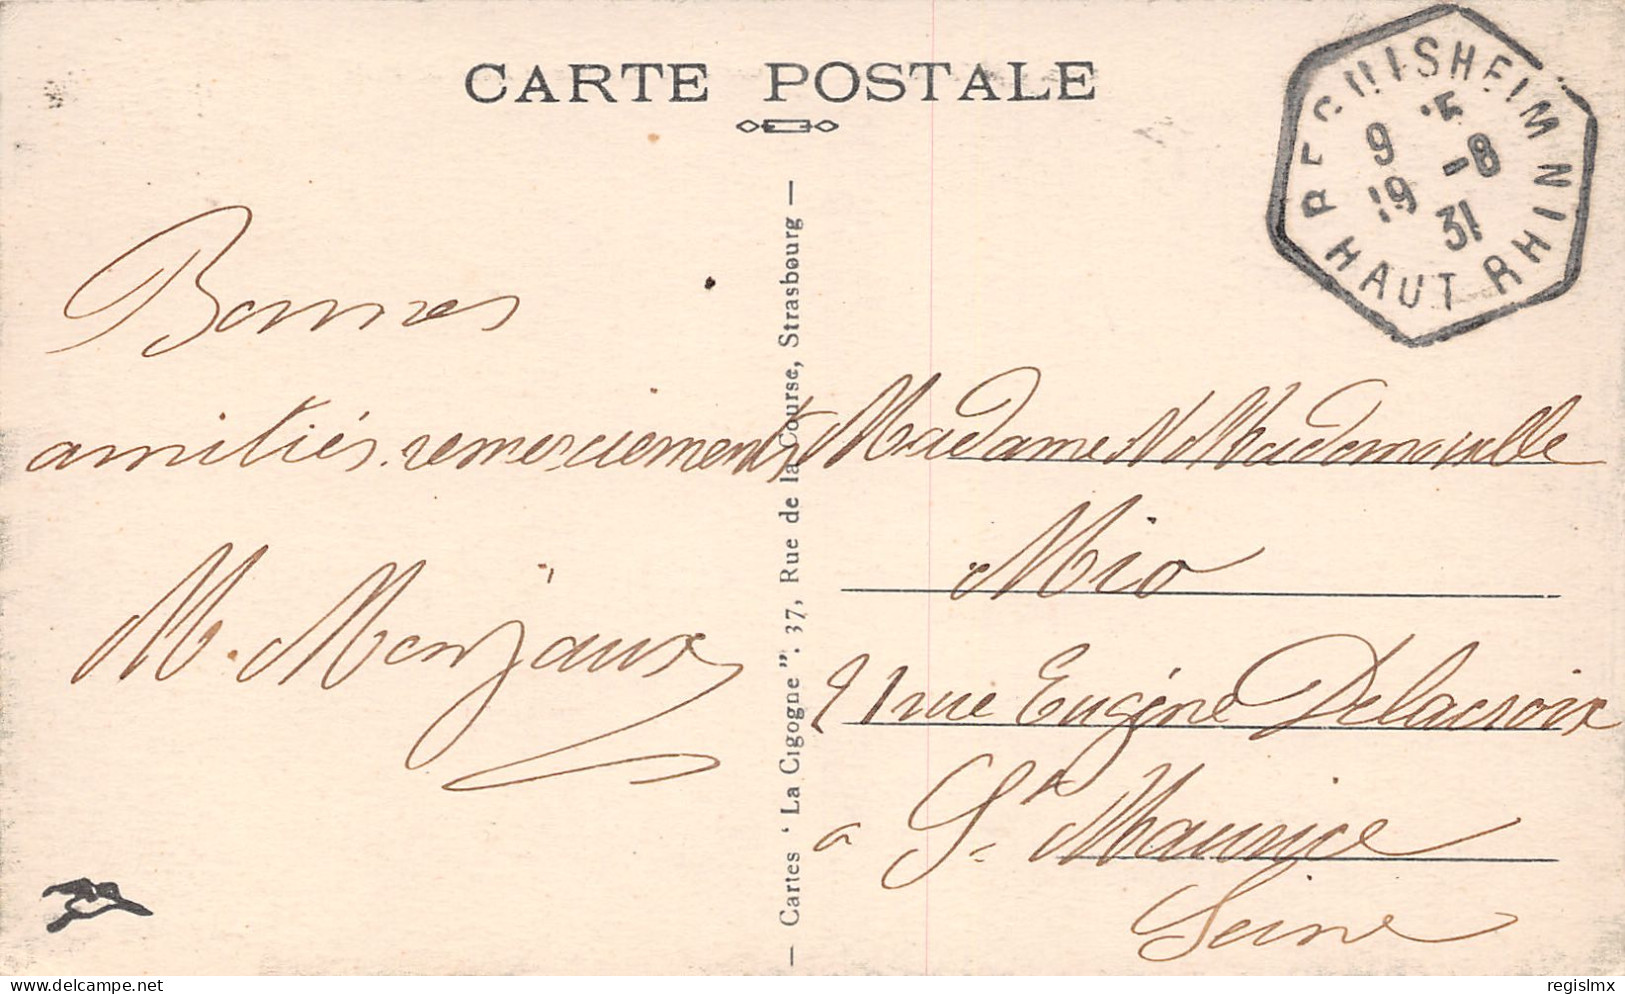 CARTE POSTALE
REGUISHEIM
9 15
-8
19 31
HAUT RHIN
Bonnes
amitiés remerciements
M. Menjaux
— Cartes "La Cigogne". 37, Rue de la Course, Strasbourg —
Madame Mademoiselle
Mio
rue Eugène Delacroix
a St Maurice
Seine
delcampe.net
regislmx